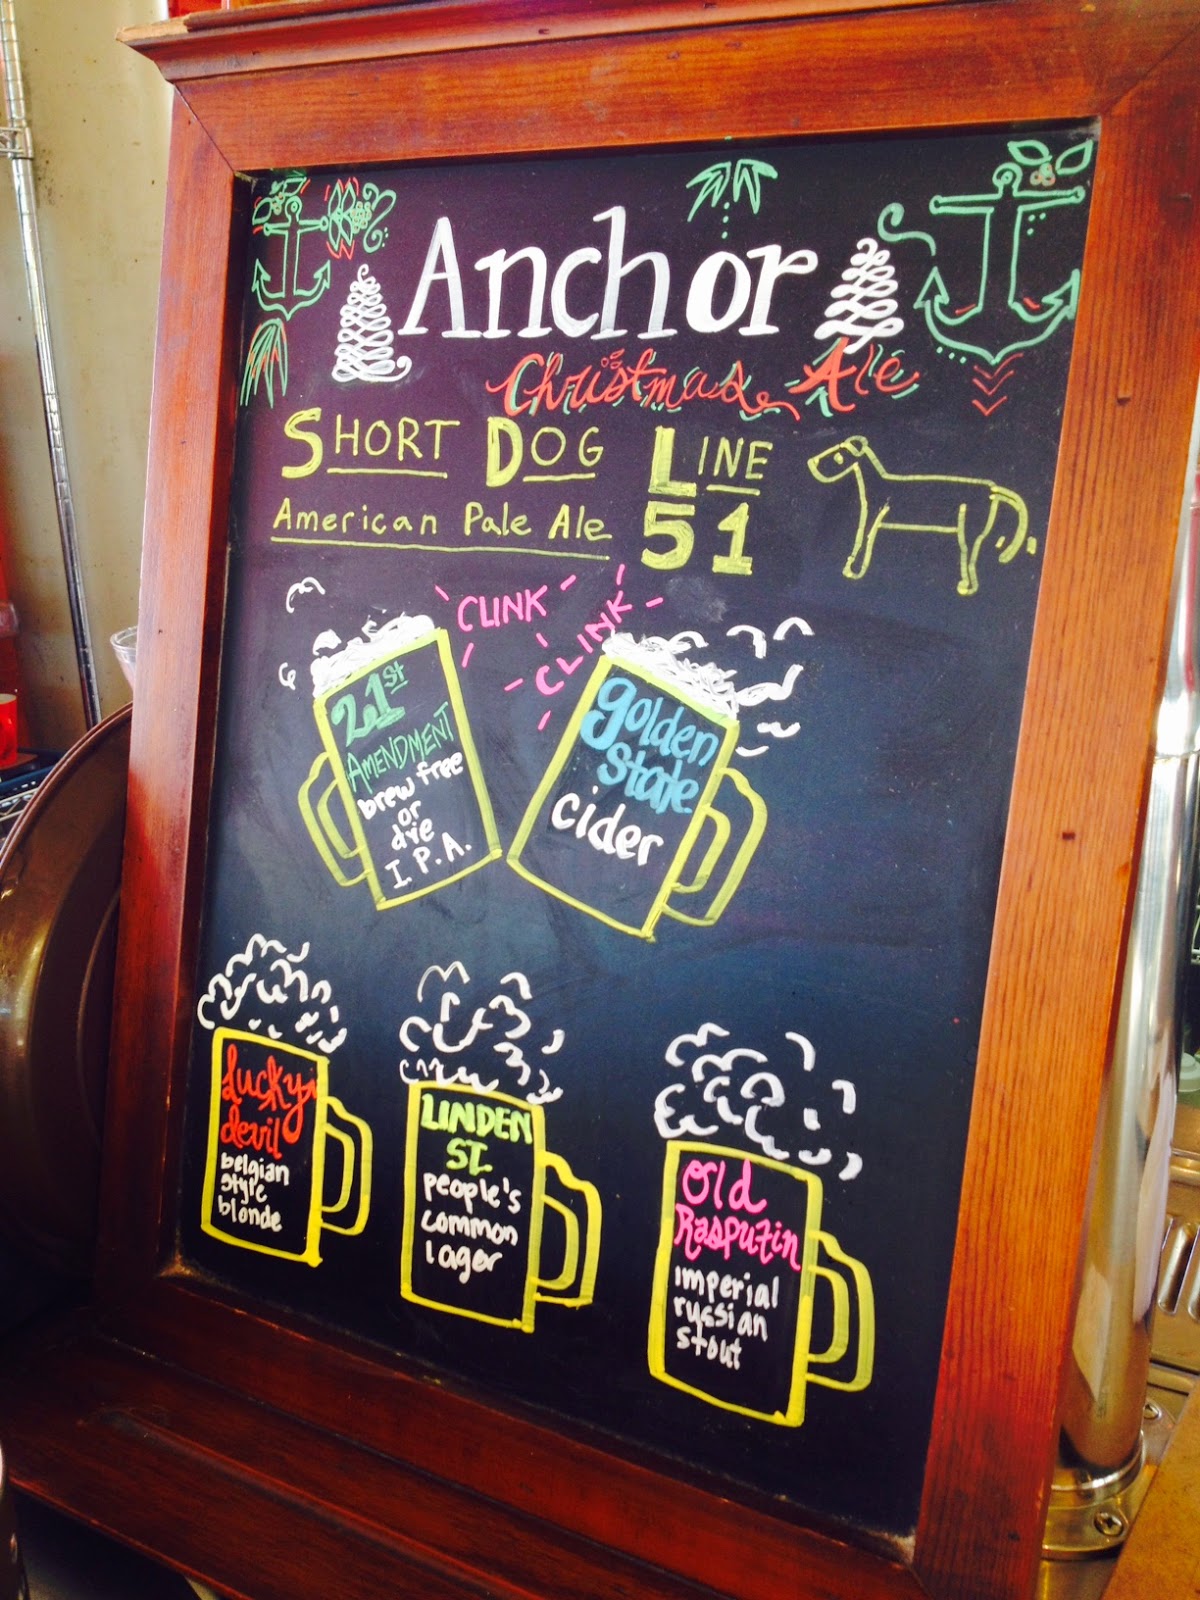 Anchor
Christmas Ale
SHORT DOG LINE
American Pale Ale 51
CLINK
CLINK
21st
AMENDMENT
brew free
or
die
I.P.A.
golden
state
cider
Lucky
devil
belgian
style
blonde
LINDEN
ST.
people's
common
lager
Old
Rasputin
imperial
russian
stout